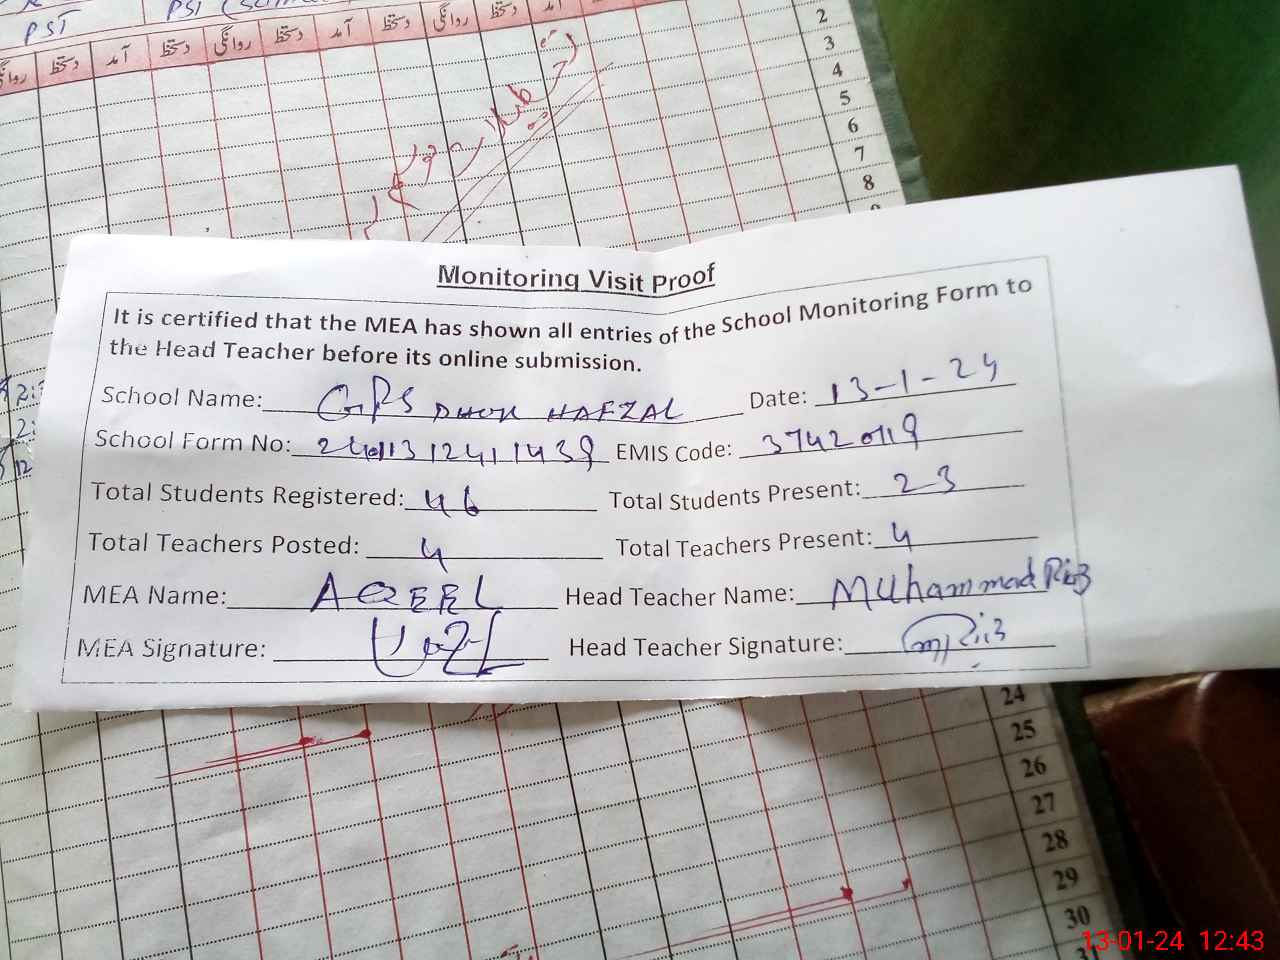 PST PST
روانگی دستخط آمد دستخط روانگی دستخط آمد دستخط روانگی دستخط آمد
2
3
4
5
6
7
8
Monitoring Visit Proof
It is certified that the MEA has shown all entries of the School Monitoring Form to
the Head Teacher before its online submission.
School Name: GPS DHOK HAFZAL Date: 13-1-24
School Form No: 240113124111439 EMIS Code: 37420119
Total Students Registered: 46 Total Students Present: 23
Total Teachers Posted: 4 Total Teachers Present: 4
MEA Name: AQEEL Head Teacher Name: Muhammad Riaz
MEA Signature: Head Teacher Signature:
24
25
26
27
28
29
30
13-01-24 12:43